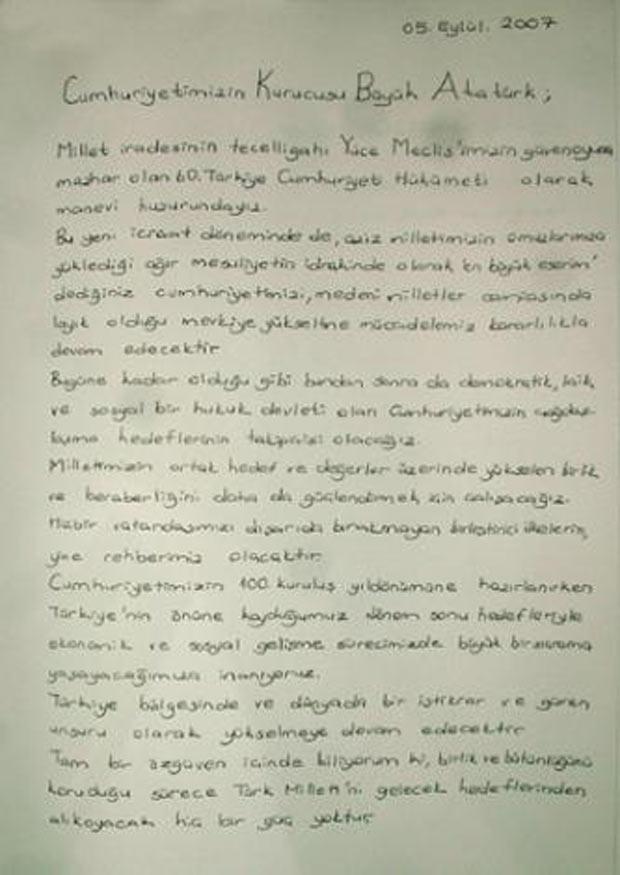 05. Eylül. 2007
Cumhuriyetimizin Kurucusu Büyük Atatürk;
Millet iradesinin tecelligahı Yüce Meclis'imizin güvenoyuna
mazhar olan 60. Türkiye Cumhuriyet Hükümeti olarak
manevi huzurundayız.
Bu yeni icraat döneminde de, aziz milletimizin omuzlarımıza
yüklediği ağır mesuliyetin idrakinde olarak 'en büyük eserim'
dediğiniz cumhuriyetimizi, medeni milletler camiasında
layık olduğu mevkiye yükseltme mücadelemiz kararlılıkla
devam edecektir
Bugüne kadar olduğu gibi bundan sonra da demokratik, laik
ve sosyal bir hukuk devleti olan Cumhuriyetimizin çağdaş-
laşma hedeflerinin takipçisi olacağız.
Milletimizin ortak hedef ve değerler üzerinde yükselen birlik
ve beraberliğini daha da güçlendirmek için çalışacağız.
Hiçbir vatandaşımızı dışarıda bırakmayan birleştirici ilkelerin,
yine rehberimiz olacaktır.
Cumhuriyetimizin 100. kuruluş yıldönümüne hazırlanırken
Türkiye'nin önüne koyduğumuz dönem sonu hedefleriyle
ekonomik ve sosyal gelişme sürecimizde büyük bir sıçrama
yaşayacağımıza inanıyoruz.
Türkiye bölgesinde ve dünyada bir istikrar ve güven
unsuru olarak yükselmeye devam edecektir
Tam bir özgüven içinde biliyorum ki, birlik ve bütünlüğünü
koruduğu sürece Türk Milleti'ni gelecek hedeflerinden
alıkoyacak hiç bir güç yoktur